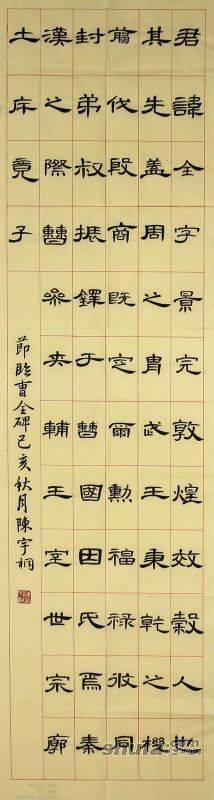 君諱全字景完敦煌效穀人也
其先蓋周之胄武王秉乾之機
翦伐殷商既定爾勳福祿攸同
封弟叔振鐸于曹國因氏焉秦
漢之際曹參夾輔王室世宗廓
土斥竟子
節臨曹全碑己亥秋月陳宇桐